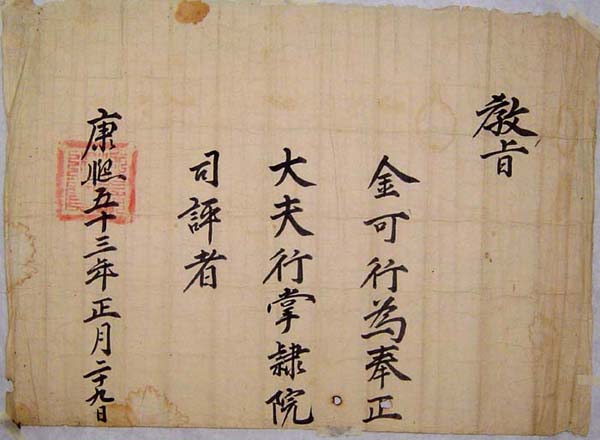 教旨
金可行為奉正
大夫行掌隷院
司評者
康熙五十三年正月二十九日